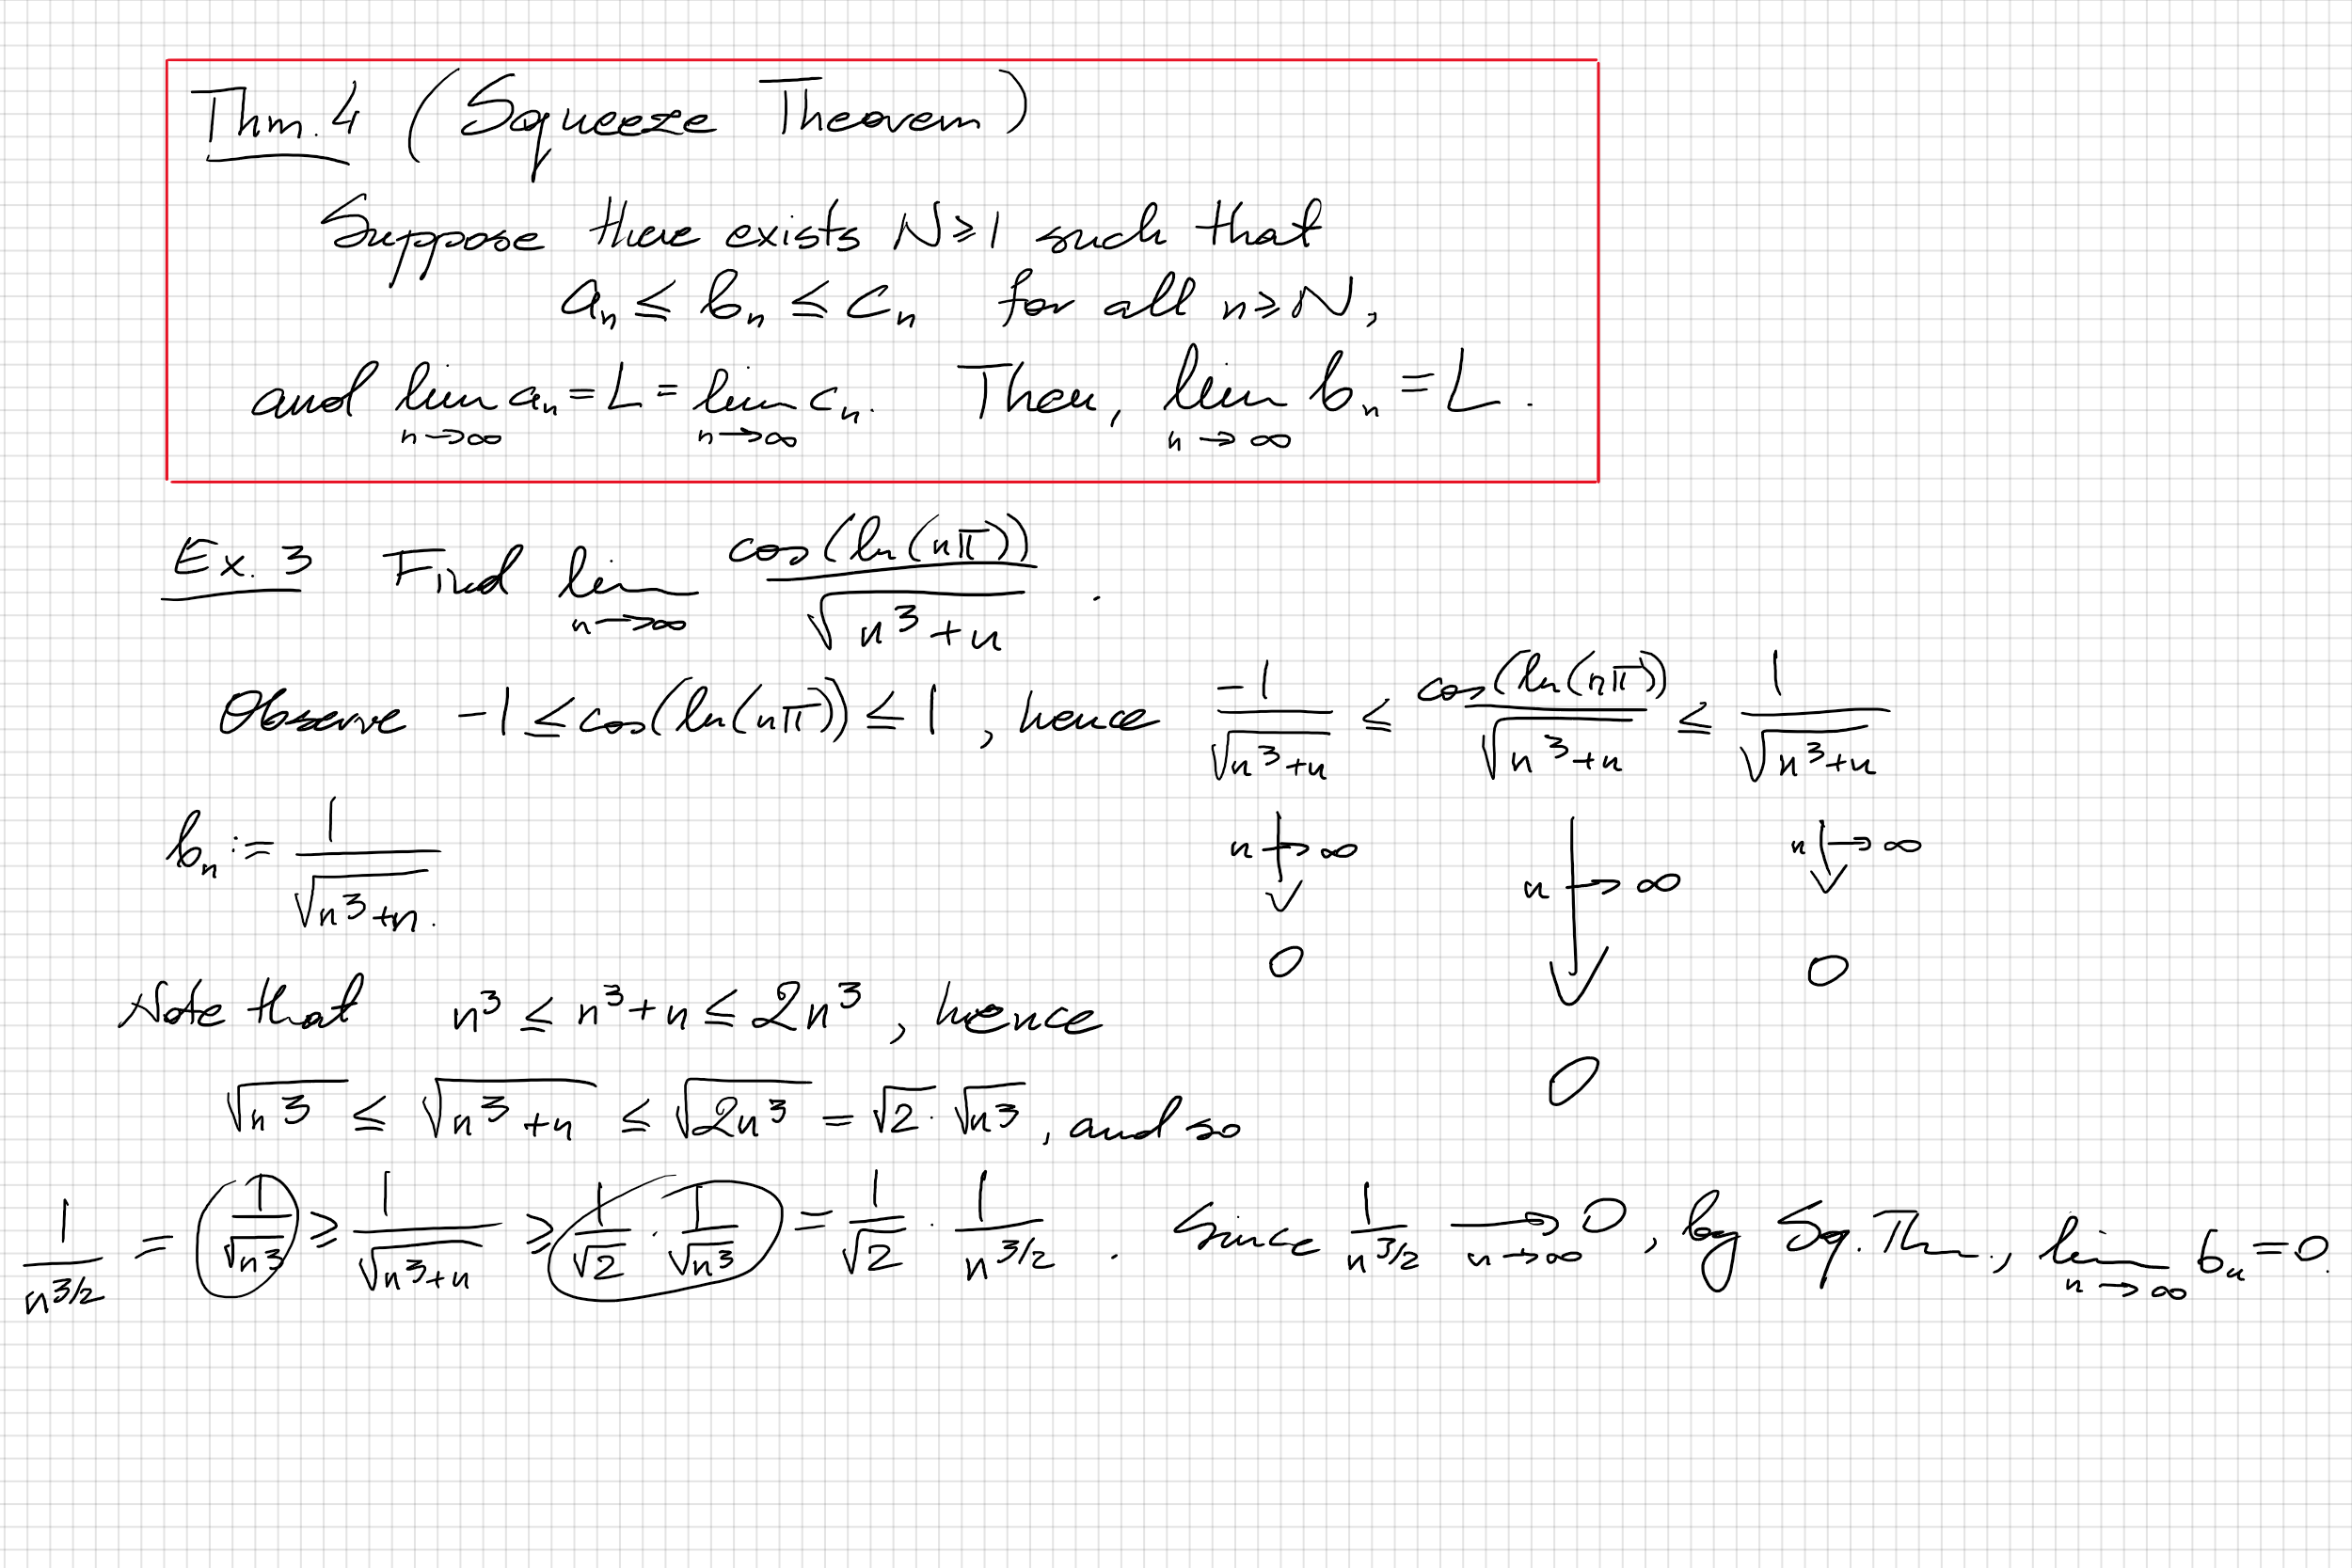 Thm. 4 (Squeeze Theorem)
Suppose there exists N ≥ 1 such that
aₙ ≤ bₙ ≤ cₙ for all n ≥ N,
and lim_{n→∞} aₙ = L = lim_{n→∞} cₙ. Then, lim_{n→∞} bₙ = L.
Ex. 3 Find lim_{n→∞} cos(ln(nπ))/√(n³+n) .
Observe -1 ≤ cos(ln(nπ)) ≤ 1, hence -1/√(n³+n) ≤ cos(ln(nπ))/√(n³+n) ≤ 1/√(n³+n)
bₙ := 1/√(n³+n).
n→∞ n→∞ n→∞
0 0 0
Note that n³ ≤ n³+n ≤ 2n³, hence
√n³ ≤ √(n³+n) ≤ √(2n³) = √2 · √n³, and so
1/n^{3/2} = 1/√n³ ≥ 1/√(n³+n) ≥ 1/√2 · 1/√n³ = 1/√2 · 1/n^{3/2}. Since 1/n^{3/2} →_{n→∞} 0, by Sq. Thm., lim_{n→∞} bₙ = 0.